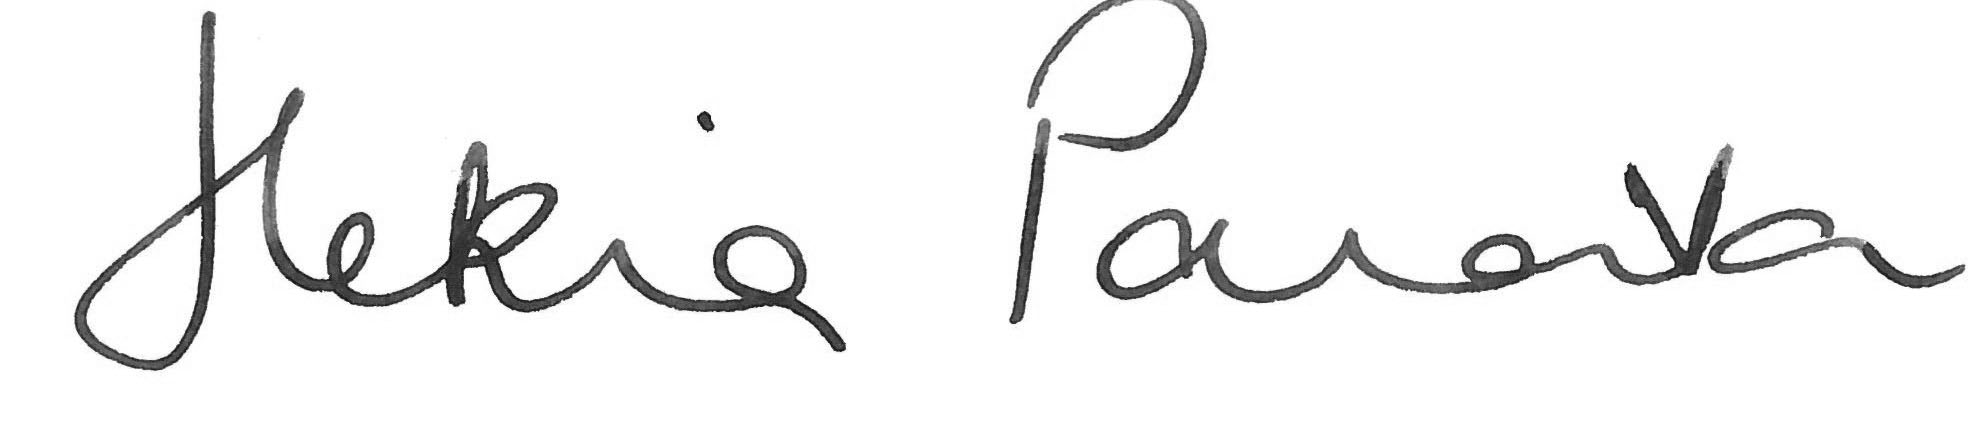 Hekia Parata